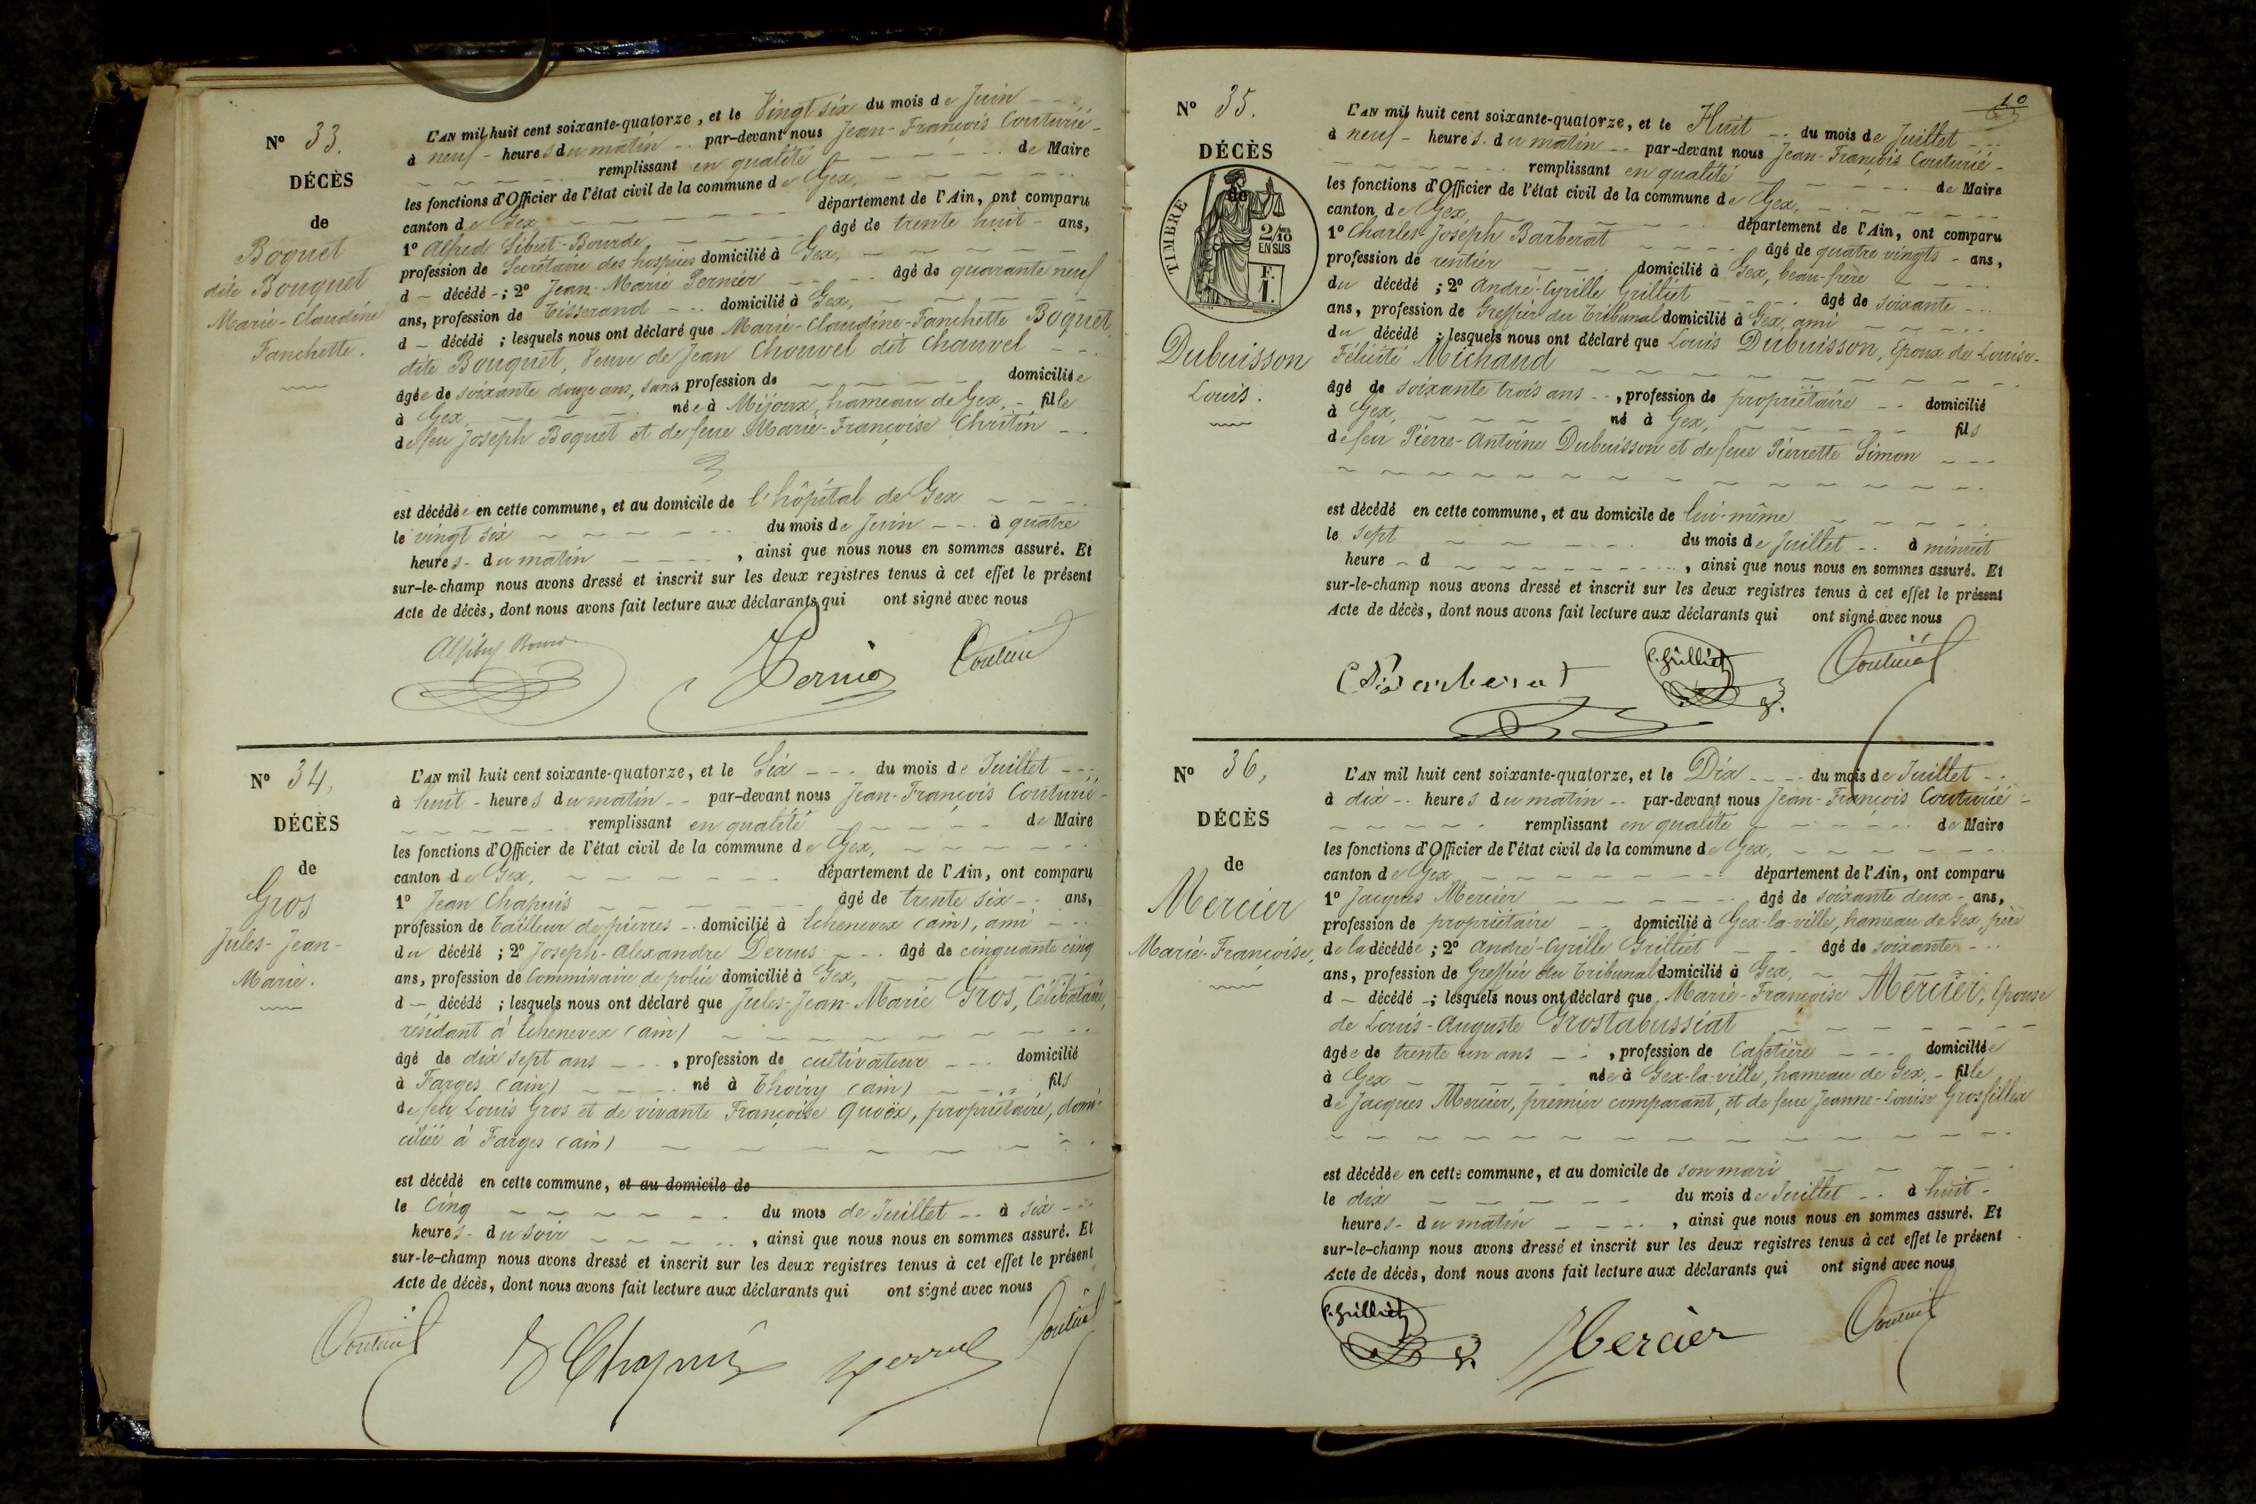 N° 33.
DÉCÈS
de
Boquet
dite Bouquet
Marie-Claudine
Fanchette.
L'AN mil huit cent soixante-quatorze, et le Vingt six du mois de Juin
à neuf heures du matin par-devant nous Jean-François Couturié
remplissant en qualité de Maire
les fonctions d'Officier de l'état civil de la commune de Gex,
canton de Gex département de l'Ain, ont comparu
1° Alfred Sibut-Bourde âgé de trente huit ans,
profession de Secrétaire des hospices domicilié à Gex,
d décédé ; 2° Jean-Marie Pernier âgé de quarante neuf
ans, profession de Tisserand domicilié à Gex,
d décédé ; lesquels nous ont déclaré que Marie-Claudine-Fanchette Boquet
dite Bouquet, Veuve de Jean Chouvel dit Chauvel
âgée de soixante douze ans, sans profession de domiciliée
à Gex, née à Mijoux, hameau de Gex, fille
de feu Joseph Boquet et de feue Marie-Françoise Chritin
est décédée en cette commune, et au domicile de l'hôpital de Gex
le vingt six du mois de Juin à quatre
heures du matin , ainsi que nous nous en sommes assuré. Et
sur-le-champ nous avons dressé et inscrit sur les deux registres tenus à cet effet le présent
Acte de décès, dont nous avons fait lecture aux déclarants qui ont signé avec nous
Pernier Couturié
N° 34.
DÉCÈS
de
Gros
Jules-Jean-
Marie.
L'AN mil huit cent soixante-quatorze, et le Six du mois de Juillet
à huit heures du matin par-devant nous Jean-François Couturié
remplissant en qualité de Maire
les fonctions d'Officier de l'état civil de la commune de Gex,
canton de Gex, département de l'Ain, ont comparu
1° Jean Chapuis âgé de trente six ans,
profession de Tailleur de pierres domicilié à Echenevex (ain), ami
du décédé ; 2° Joseph-Alexandre Derrus âgé de cinquante cinq
ans, profession de Commissaire de police domicilié à Gex,
d décédé ; lesquels nous ont déclaré que Jules-Jean-Marie Gros, Célibataire,
résidant à Echenevex (ain)
âgé de dix sept ans , profession de cultivateur domicilié
à Farges (ain) né à Thoiry (ain) fils
de feu Louis Gros et de vivante Françoise Quoëx, propriétaire, domi-
ciliée à Farges (ain)
est décédé en cette commune, et au domicile de
le Cinq du mois de Juillet à six
heures du soir , ainsi que nous nous en sommes assuré. Et
sur-le-champ nous avons dressé et inscrit sur les deux registres tenus à cet effet le présent
Acte de décès, dont nous avons fait lecture aux déclarants qui ont signé avec nous
Couturié J Chapuis Derrus Couturié
10
N° 35.
DÉCÈS
de
TIMBRE
2/10
EN SUS
Dubuisson
Louis.
L'AN mil huit cent soixante-quatorze, et le Huit du mois de Juillet
à neuf heures du matin par-devant nous Jean-François Couturié
remplissant en qualité de Maire
les fonctions d'Officier de l'état civil de la commune de Gex,
canton de Gex, département de l'Ain, ont comparu
1° Charles-Joseph Barberat âgé de quatre vingts ans,
profession de rentier domicilié à Gex, beau-frère
du décédé ; 2° André-Cyrille Grilliet âgé de soixante
ans, profession de Greffier du Tribunal domicilié à Gex, ami
du décédé ; lesquels nous ont déclaré que Louis Dubuisson, Epoux de Louise-
Félicité Michaud
âgé de soixante trois ans , profession de propriétaire domicilié
à Gex, né à Gex, fils
de feu Pierre-Antoine Dubuisson et de feue Pierrette Simon
est décédé en cette commune, et au domicile de lui-même
le sept du mois de Juillet à minuit
heure d , ainsi que nous nous en sommes assuré. Et
sur-le-champ nous avons dressé et inscrit sur les deux registres tenus à cet effet le présent
Acte de décès, dont nous avons fait lecture aux déclarants qui ont signé avec nous
C Barberat C. Grilliet Couturié
N° 36.
DÉCÈS
de
Mercier
Marie-Françoise.
L'AN mil huit cent soixante-quatorze, et le Dix du mois de Juillet
à dix heures du matin par-devant nous Jean-François Couturié
remplissant en qualité de Maire
les fonctions d'Officier de l'état civil de la commune de Gex,
canton de Gex département de l'Ain, ont comparu
1° Jacques Mercier âgé de soixante deux ans,
profession de propriétaire domicilié à Gex-la-ville, hameau de Gex, père
de la décédée ; 2° André-Cyrille Grilliet âgé de soixante
ans, profession de Greffier du Tribunal domicilié à Gex,
d décédé ; lesquels nous ont déclaré que Marie-Françoise Mercier, Epouse
de Louis-Auguste Grostabussiat
âgée de trente un ans , profession de Cafetière domiciliée
à Gex née à Gex-la-ville, hameau de Gex, fille
de Jacques Mercier, premier comparant, et de feue Jeanne-Louise Grosfillex
est décédée en cette commune, et au domicile de son mari
le dix du mois de Juillet à huit
heures du matin , ainsi que nous nous en sommes assuré. Et
sur-le-champ nous avons dressé et inscrit sur les deux registres tenus à cet effet le présent
Acte de décès, dont nous avons fait lecture aux déclarants qui ont signé avec nous
C. Grilliet Mercier Couturié